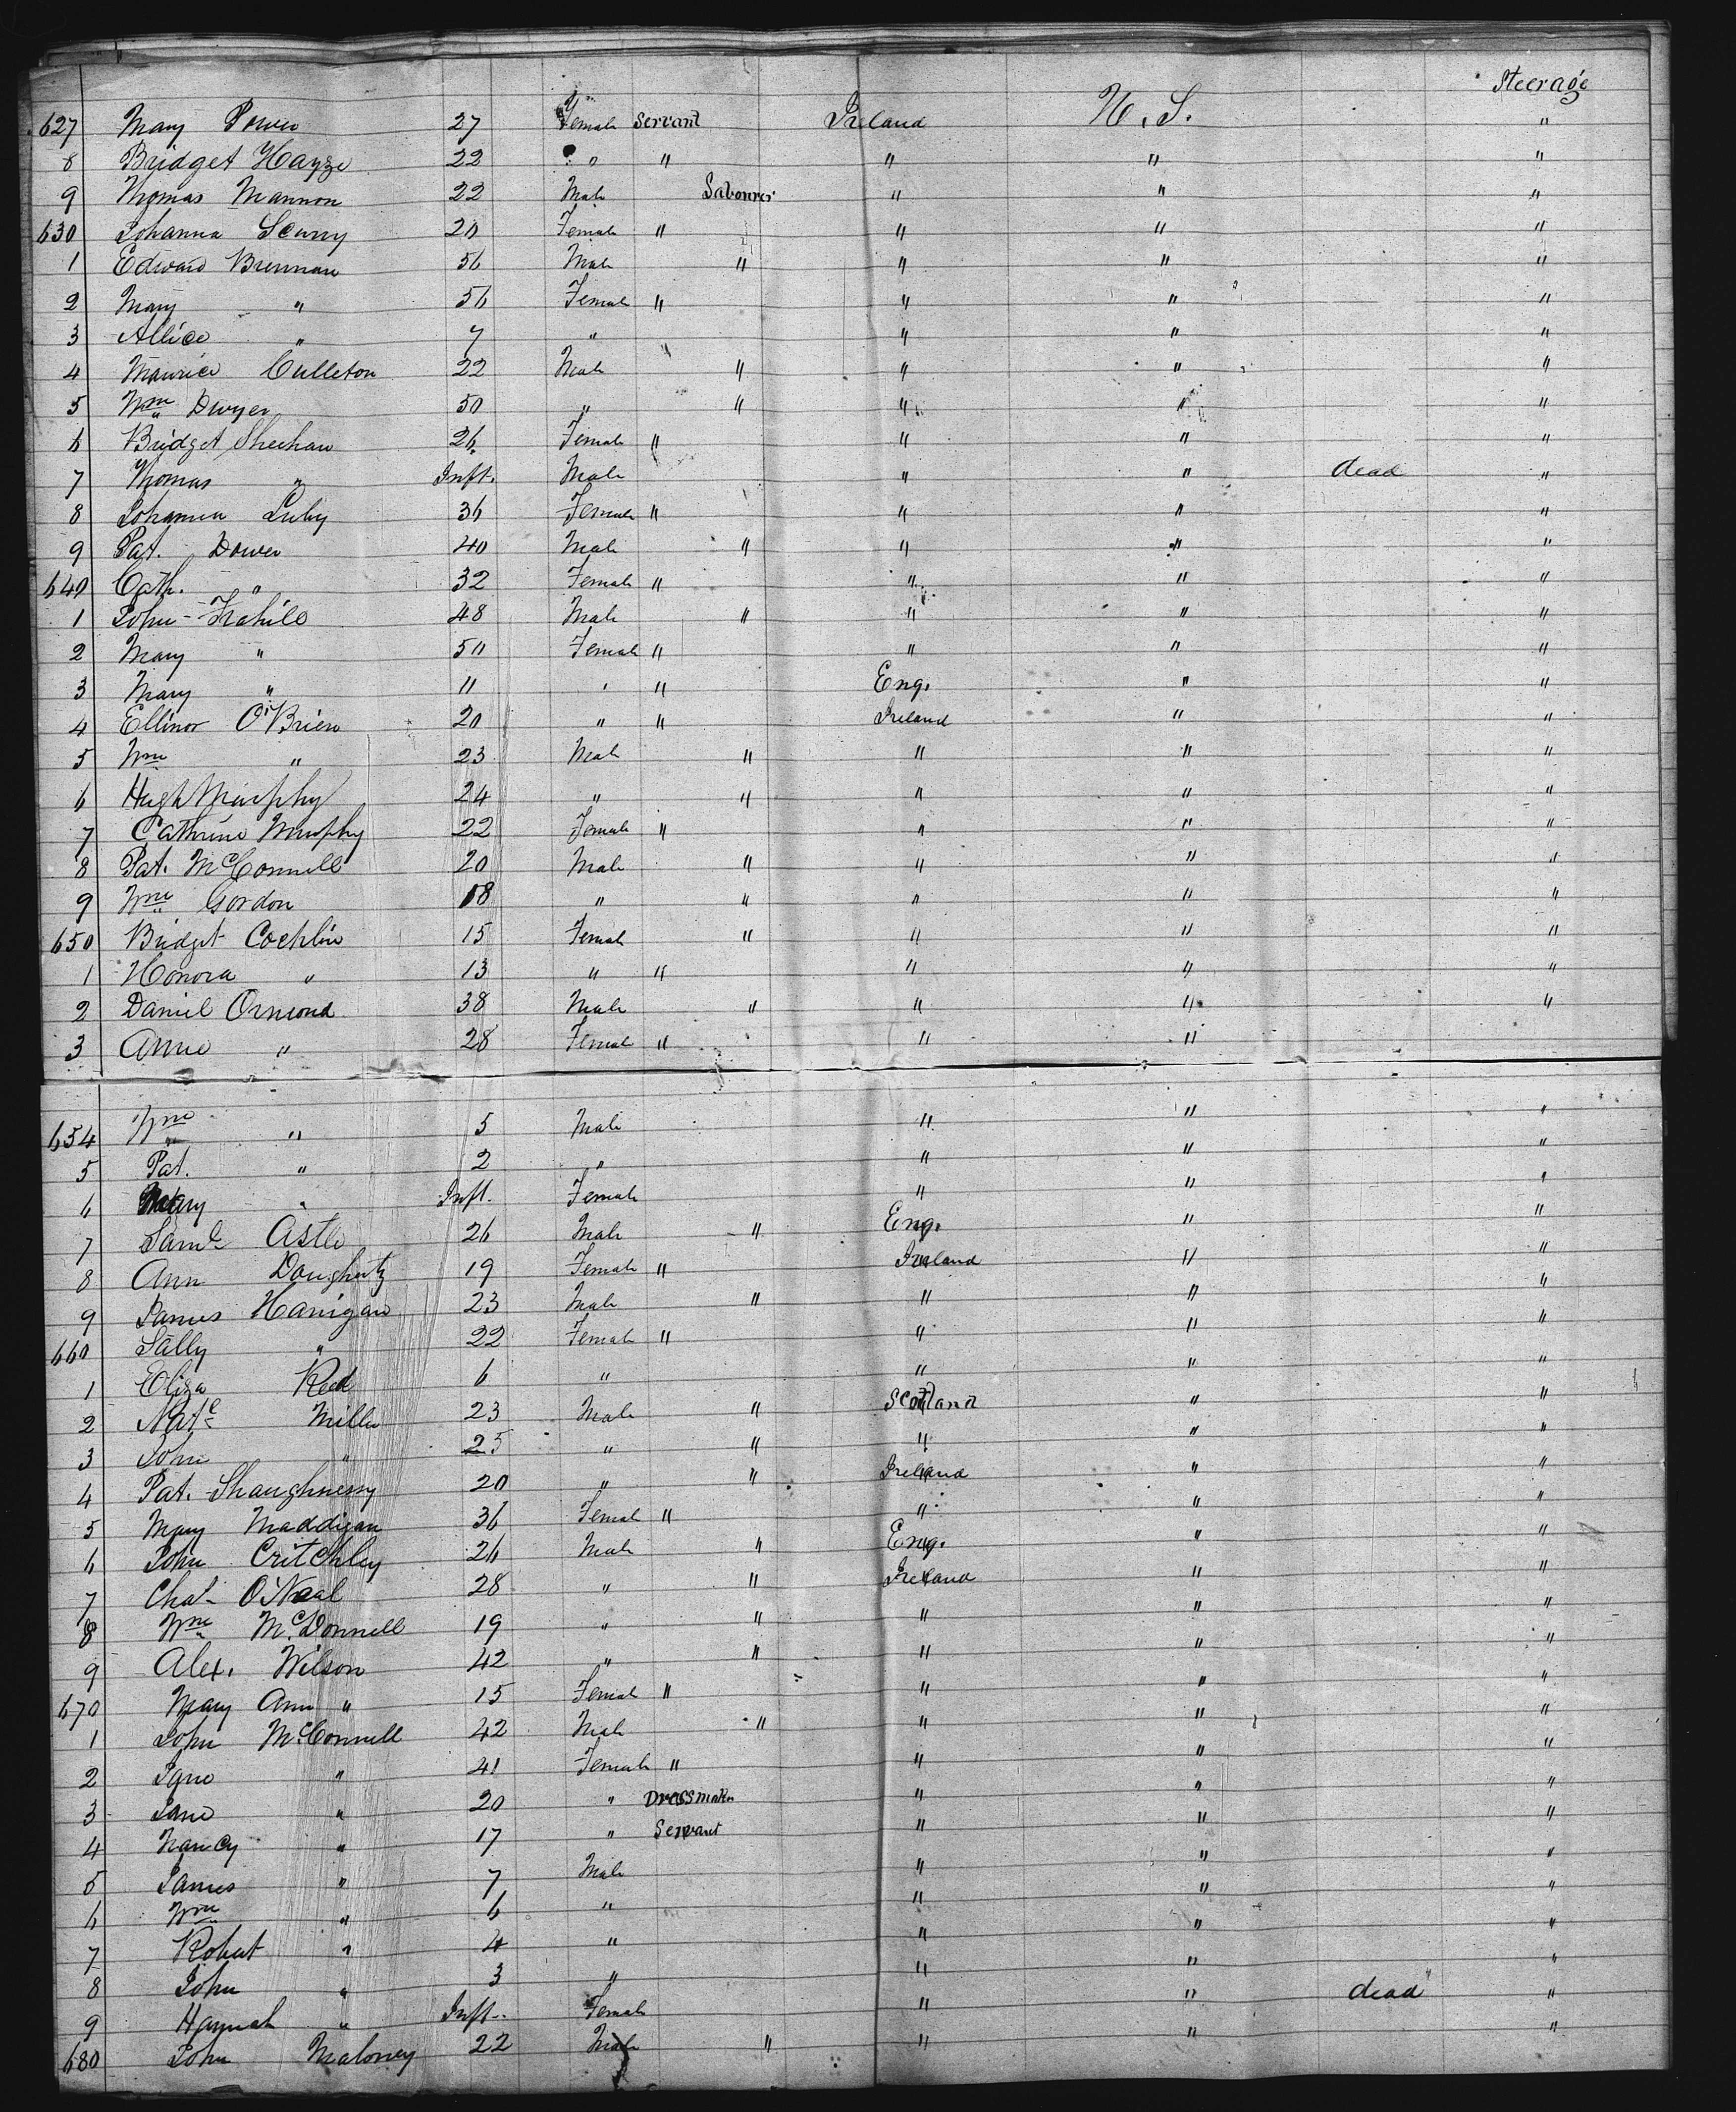 Steerage
627 Mary Power 27 Female Servant Ireland U.S. "
8 Bridget Hayze 22 " " " " "
9 Thomas Mannon 22 Male Labourer " " "
630 Johanna Scurry 20 Female " " " "
1 Edward Brennan 56 Male " " " "
2 Mary " 56 Female " " " "
3 Allice " 7 " " " "
4 Maurice Culleton 22 Male " " " "
5 Wm Dwyer 50 " " " " "
6 Bridget Sheehan 26 Female " " " "
7 Thomas " Inft. Male " " dead "
8 Johanna Luby 36 Female " " " "
9 Pat. Dower 40 Male " " " "
640 Cath. " 32 Female " " " "
1 John Frahill 48 Male " " " "
2 Mary " 50 Female " " " "
3 Mary " 11 " " Eng. " "
4 Ellinor O'Brien 20 " " Ireland " "
5 Wm " 23 Male " " " "
6 Hugh Murphy 24 " " " " "
7 Cathrine Murphy 22 Female " " " "
8 Pat. McConnell 20 Male " " " "
9 Wm Gordon 18 " " " " "
650 Bridget Coghlin 15 Female " " " "
1 Honora " 13 " " " " "
2 Daniel Ormond 38 Male " " " "
3 Anne " 28 Female " " "
654 Wm " 5 Male " " "
5 Pat. " 2 " " " "
6 Mary " Inft. Female " " "
7 Saml Astle 26 Male " Eng. " "
8 Ann Doughertz 19 Female " Ireland " "
9 James Hanigan 23 Male " " " "
660 Sally " 22 Female " " " "
1 Eliza Reed 6 " " " "
2 Nate Miller 23 Male " Scotland " "
3 John " 25 " " " " "
4 Pat. Shaughnessy 20 " " Ireland " "
5 Mary Maddigan 36 Female " " " "
6 John Critchley 26 Male " Eng. " "
7 Chas O'Neal 28 " " Ireland " "
8 Wm McDonnell 19 " " " " "
9 Alex. Wilson 42 " " " " "
670 Mary Ann " 15 Female " " " "
1 John McConnell 42 Male " " " "
2 Jane " 41 Female " " " "
3 Jane " 20 " Dressmaker " " "
4 Nancy " 17 " Servant " " "
5 James " 7 Male " " "
6 Wm " 6 " " " "
7 Robert " 4 " " " "
8 John " 3 " " " "
9 Hannah " Inft. Female " " dead "
680 John Maloney 22 Male " " " "